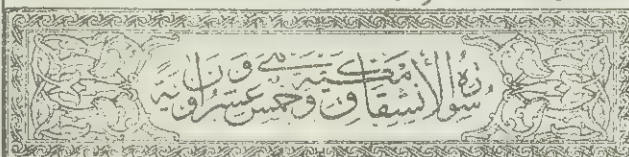 سُورَةُ الأنشِقَاقِ مَكِّيَّة وهى خمس وعشرون اية